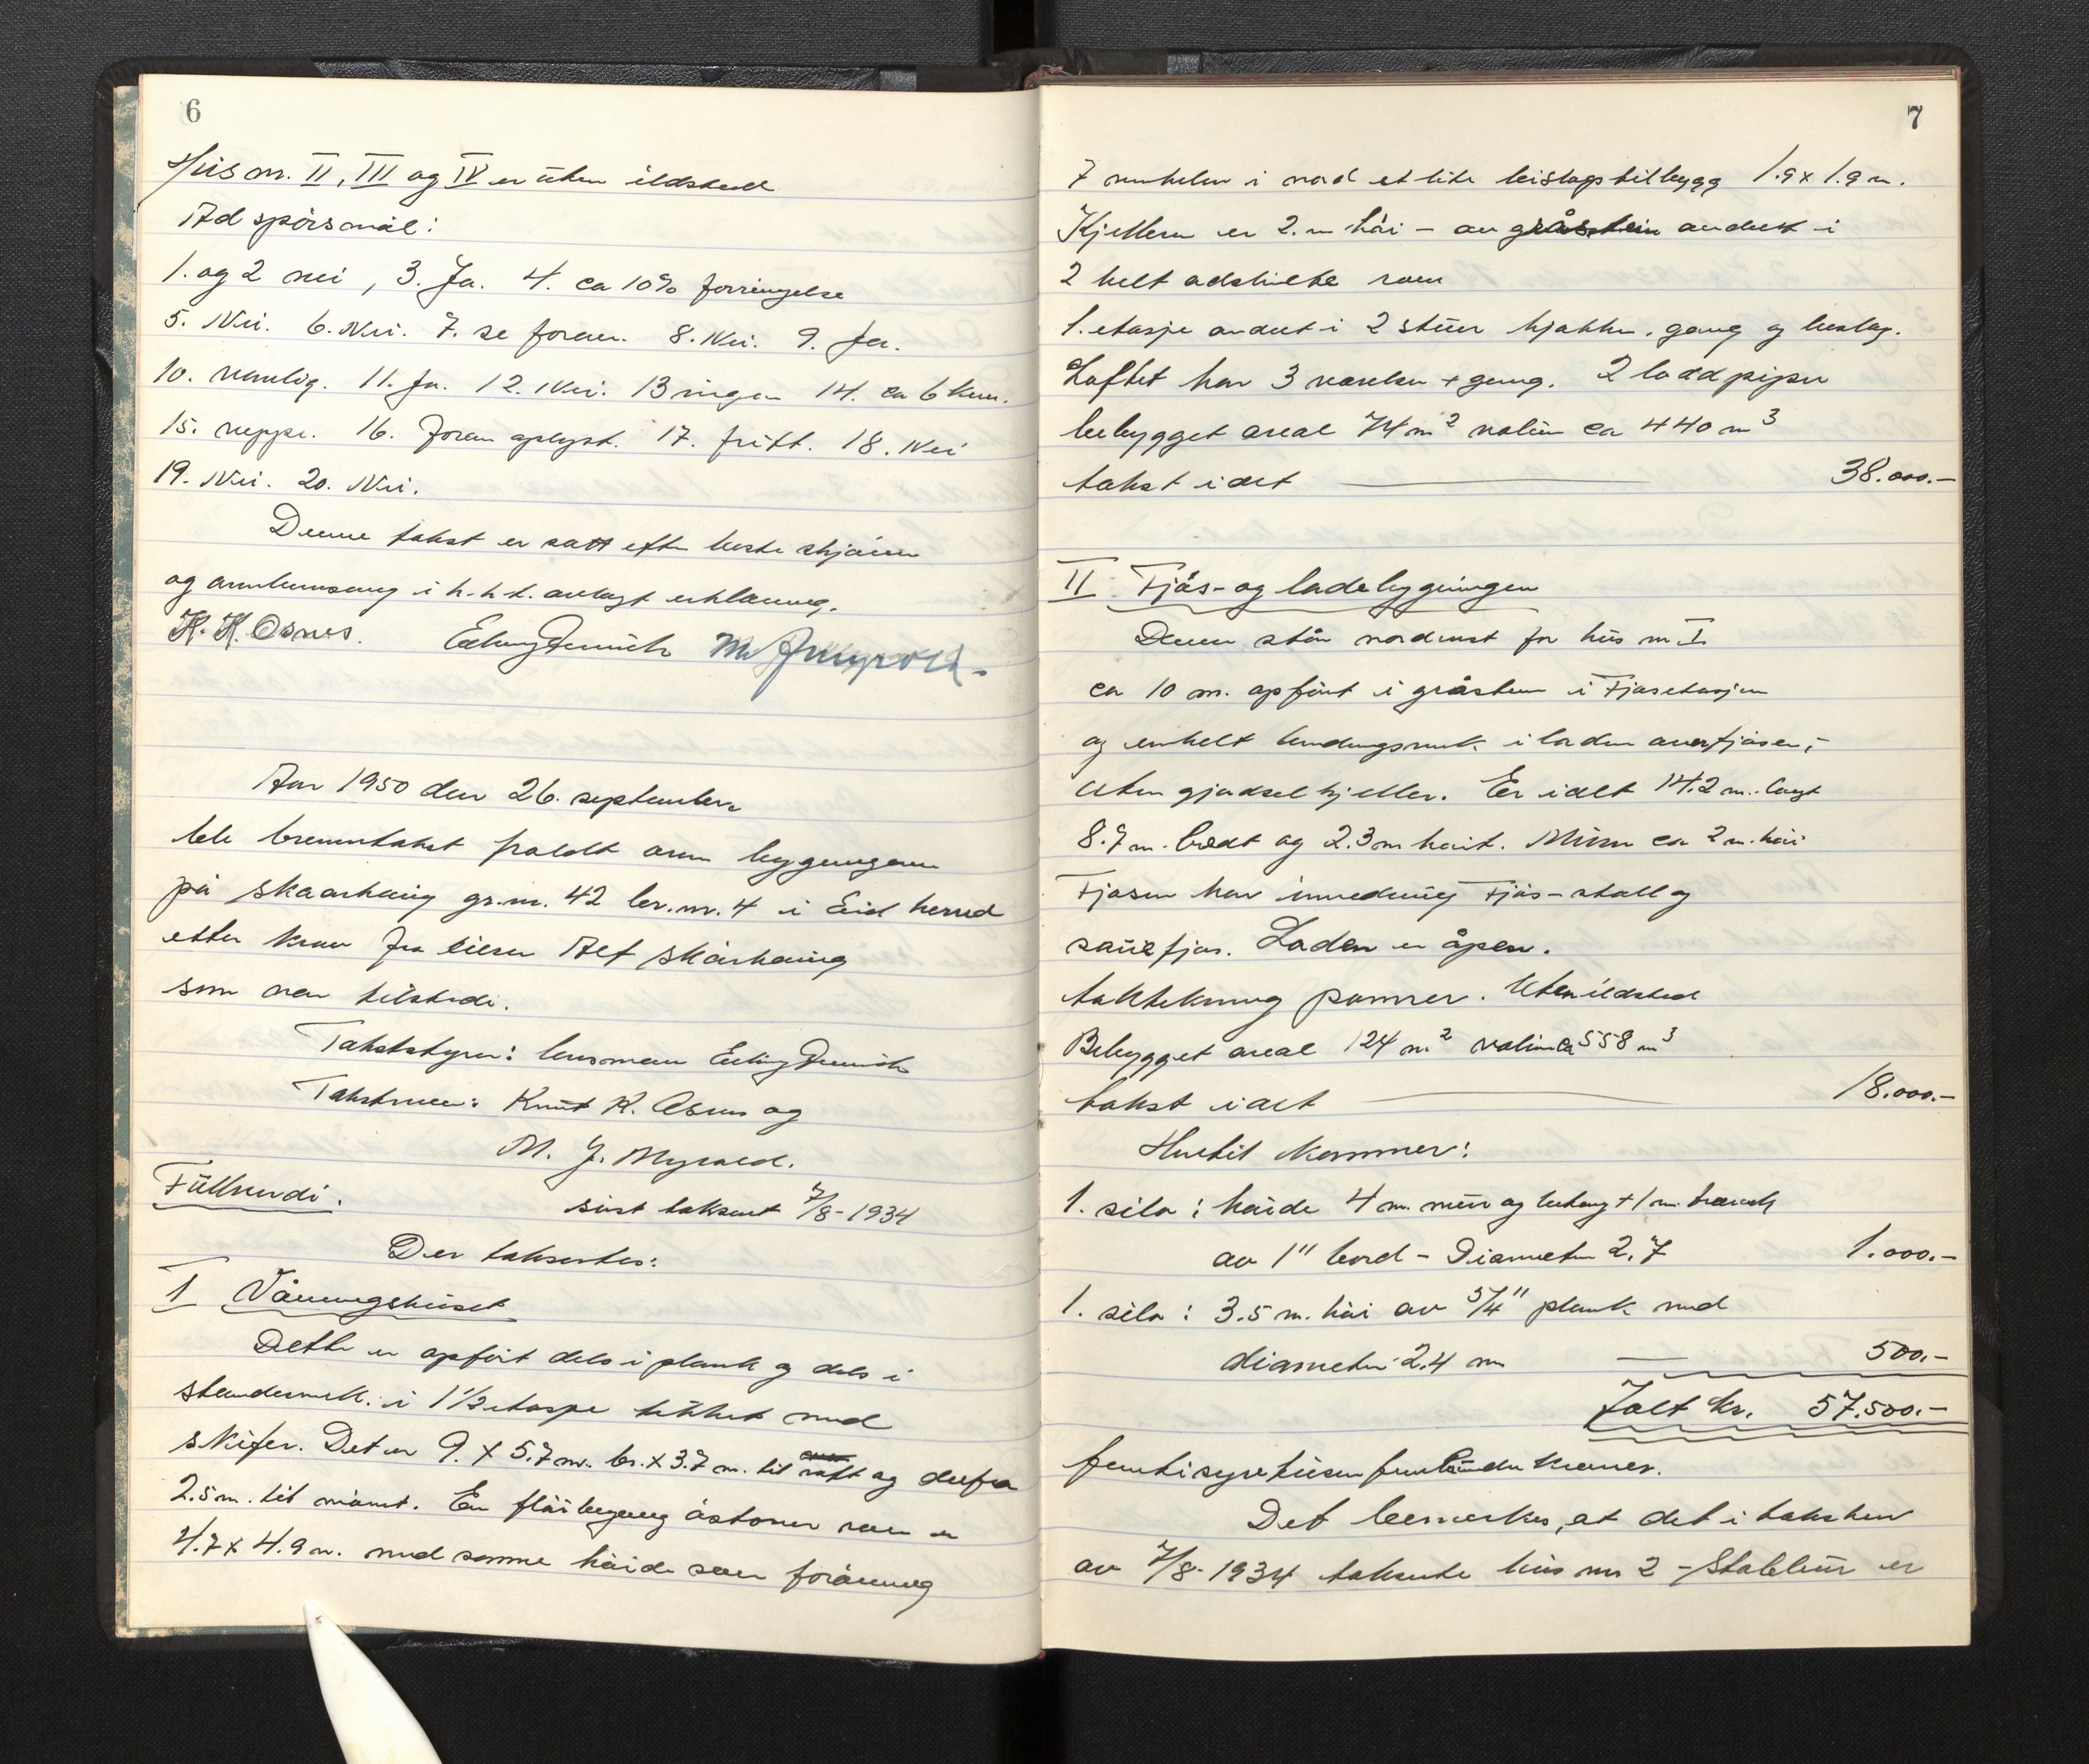 6
Hus nr. II, III og IV er uten ildsted
Ad spörsmål:
1. og 2 nei, 3. Ja. 4. ca 10% forringelse
5. Nei. 6. Nei. 7. se foran. 8. Nei. 9. Ja.
10. vanlig. 11. Ja. 12. Nei. 13 ingen 14. ca 6 km.
15. neppe. 16. Foran oplyst. 17. fritt. 18. Nei
19. Nei. 20. Nei.
Denne takst er satt efter beste skjönn
og overbevisning i h.h.t. avlagt erklæring.
K. K. Osnes. Erling M. J. Myrold.
Aar 1950 den 26. september
ble branntakst holdt over bygningene
på Skaarhaug gr.nr. 42 br.nr. 4 i Eid herred
etter krav fra eieren Alf Skårhaug
som var tilstede.
Takststyrer: lensmann Erling
Takstmenn: Knut K. Osnes og
M. J. Myrold.
Fullverdi. sist taksert 7/8-1934
Der taksertes:
I Våningshuset
Dette er opfört dels i plank og dels i
stenderverk. i 1 1/2 etasje tekket med
skifer. Det er 9. x 5.7 m. br. x 3.7 m. til raft og derfra
2.5 m. til mönet. En flöibygning åstover som er
4.7 x 4.9 m. med samme höide som forövrig
7
7 vinkelen i nord et lite bislagstilbygg 1.9 x 1.9 m.
Kjelleren er 2. m höi - av gråstein andelt i
2 helt adskilte rom
1. etasje andelt i 2 stuer kjökken, gang og bislag.
Loftet har 3 værelser + gang. 2 loddpiper
bebygget areal 74 m2 volum ca 440 m3
takst i alt 38.000.-
II. Fjös- og ladebygningen
Denne står nordvest for hus nr I
ca 10 m. opfört i gråsten i Fjösetasjen
og enkelt bindingsverk i laden over fjösen,-
uten gjödselkjeller. Er i alt 14.2 m. langt
8.7 m. bredt og 2.3 m höit. Muren ca 2 m. höi
Fjösen har innredning Fjös-stall og
sauefjös. Laden er åpen.
taktekning panner. Uten ildsted
Bebygget areal 124 m2 volum ca 558 m3
takst i alt 18.000.-
Hertil kommer:
1. silo: höide 4 m. mur og betong + 1 m. treverk
av 1" bord - Diameter 2.7 1.000.-
1. silo: 3.5 m. höi av 5/4" plank med
diameter 2.4 m 500.-
Ialt kr. 57.500.-
femtisyvtusenfemhundre kroner.
Det bemerkes, at det i taksten
av 7/8-1934 takserte hus nr 2 - Stabbur er